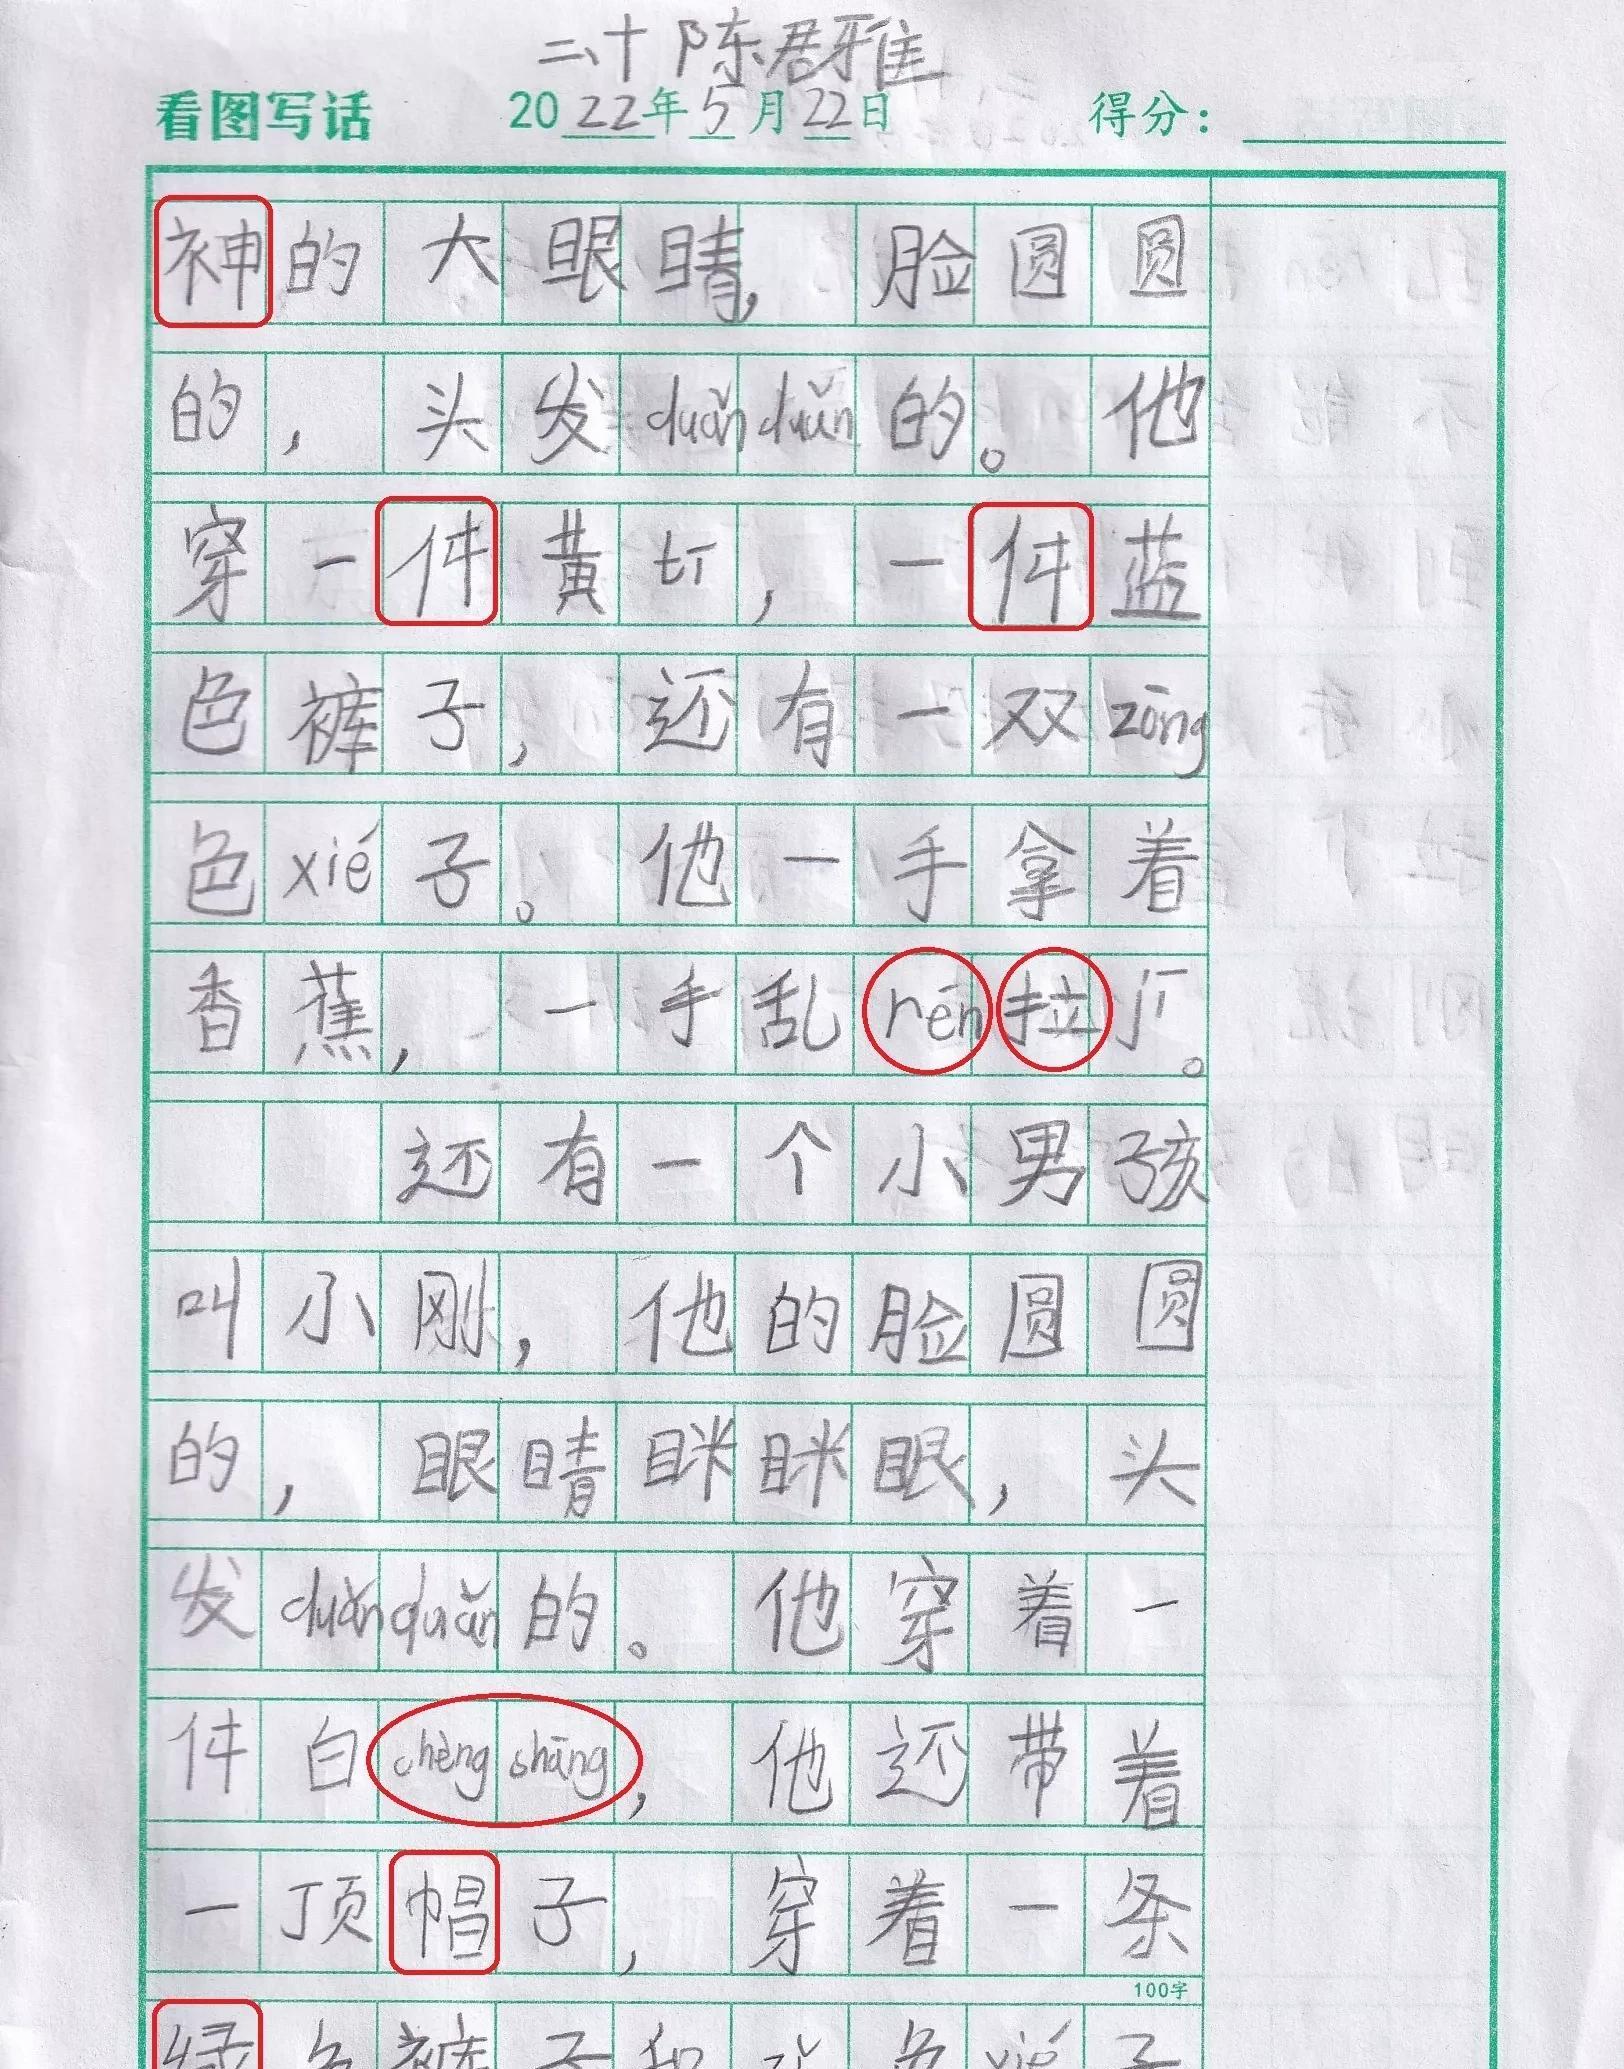 二、十 陈君雅
看图写话 2022年5月22日 得分：
神的大眼睛，脸圆圆
的，头发duǎnduǎn的。他
穿一件黄tī，一件蓝
色裤子，还有一双zōng
色xié子。他一手拿着
香蕉，一手乱rēn拉jī。
还有一个小男孩
叫小刚，他的脸圆圆
的，眼睛眯眯眼，头
发duǎnduǎn的。他穿着一
件白chèngshāng，他还带着
一顶帽子，穿着一条
100字
绿色裤子和 色xié子